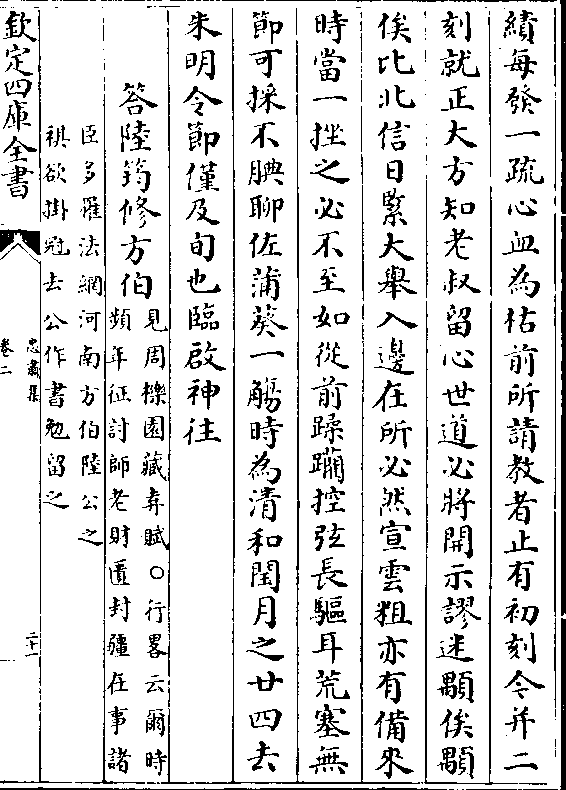 績每發一疏心血為枯前所請教者止有初刻今并二
刻就正大方知老叔留心世道必將開示謬迷顒俟顒
俟比北信日緊大舉入邊在所必然宣雲粗亦有備來
時當一挫之必不至如從前蹂躪控弦長驅耳荒塞無
節可採不腆聊佐蒲葵一觴時為清和閏月之廿四去
朱明令節僅及旬也臨啟神往
答陸筠修方伯
見周櫟園藏弆賦〇行畧云爾時
頻年征討師老財匱封疆任事諸
臣多罹法網河南方伯陸公之
祺欲掛冠去公作書勉留之
欽定四庫全書
忠肅集
卷二
二十一